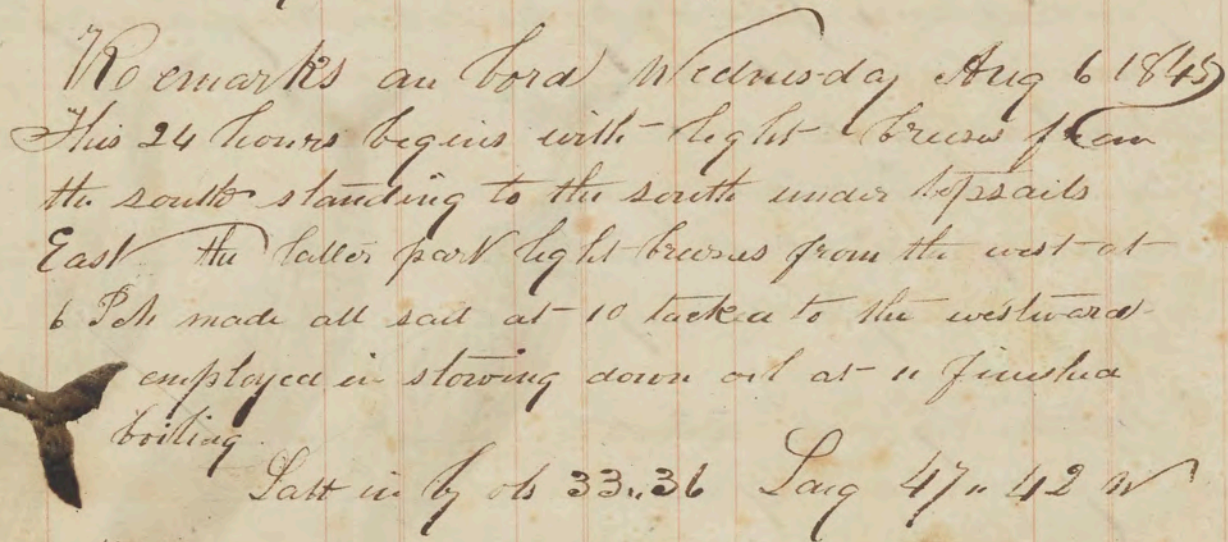 Remarks on bord Wednesday Aug 6 1845
This 24 hours begins with light breeses from
the south standing to the south under topsails
East the latter part light breeses from the west at
6 PM made all sail at 10 tacked to the westward
employed in stowing down oil at 11 finished
boiling
Latt in by ob 33,,36 Long 47,,42 W